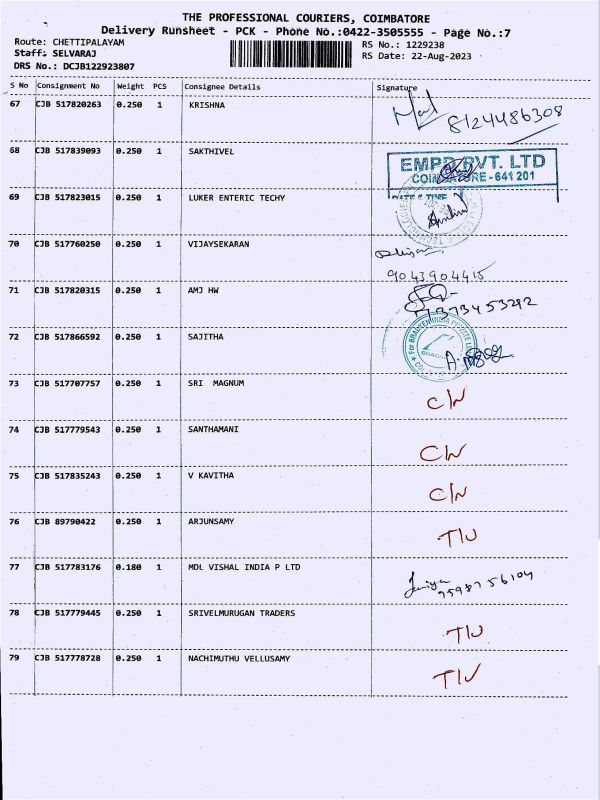 THE PROFESSIONAL COURIERS, COIMBATORE
Delivery Runsheet - PCK - Phone No.:0422-3505555 - Page No.:7
Route: CHETTIPALAYAM RS No.: 1229238
Staff: SELVARAJ RS Date: 22-Aug-2023
DRS No.: DCJB122923807
S No Consignment No Weight PCS Consignee Details Signature
67 CJB 517820263 0.250 1 KRISHNA
8124486308
68 CJB 517839093 0.250 1 SAKTHIVEL
PVT. LTD
641 201
69 CJB 517823015 0.250 1 LUKER ENTERIC TECHY
70 CJB 517760250 0.250 1 VIJAYSEKARAN
9043904415
71 CJB 517820315 0.250 1 AMJ HW
72 CJB 517866592 0.250 1 SAJITHA
73 CJB 517707757 0.250 1 SRI MAGNUM C/N
74 CJB 517779543 0.250 1 SANTHAMANI C/N
75 CJB 517835243 0.250 1 V KAVITHA C/N
76 CJB 89790422 0.250 1 ARJUNSAMY
77 CJB 517783176 0.180 1 MDL VISHAL INDIA P LTD
78 CJB 517779445 0.250 1 SRIVELMURUGAN TRADERS
79 CJB 517778728 0.250 1 NACHIMUTHU VELLUSAMY